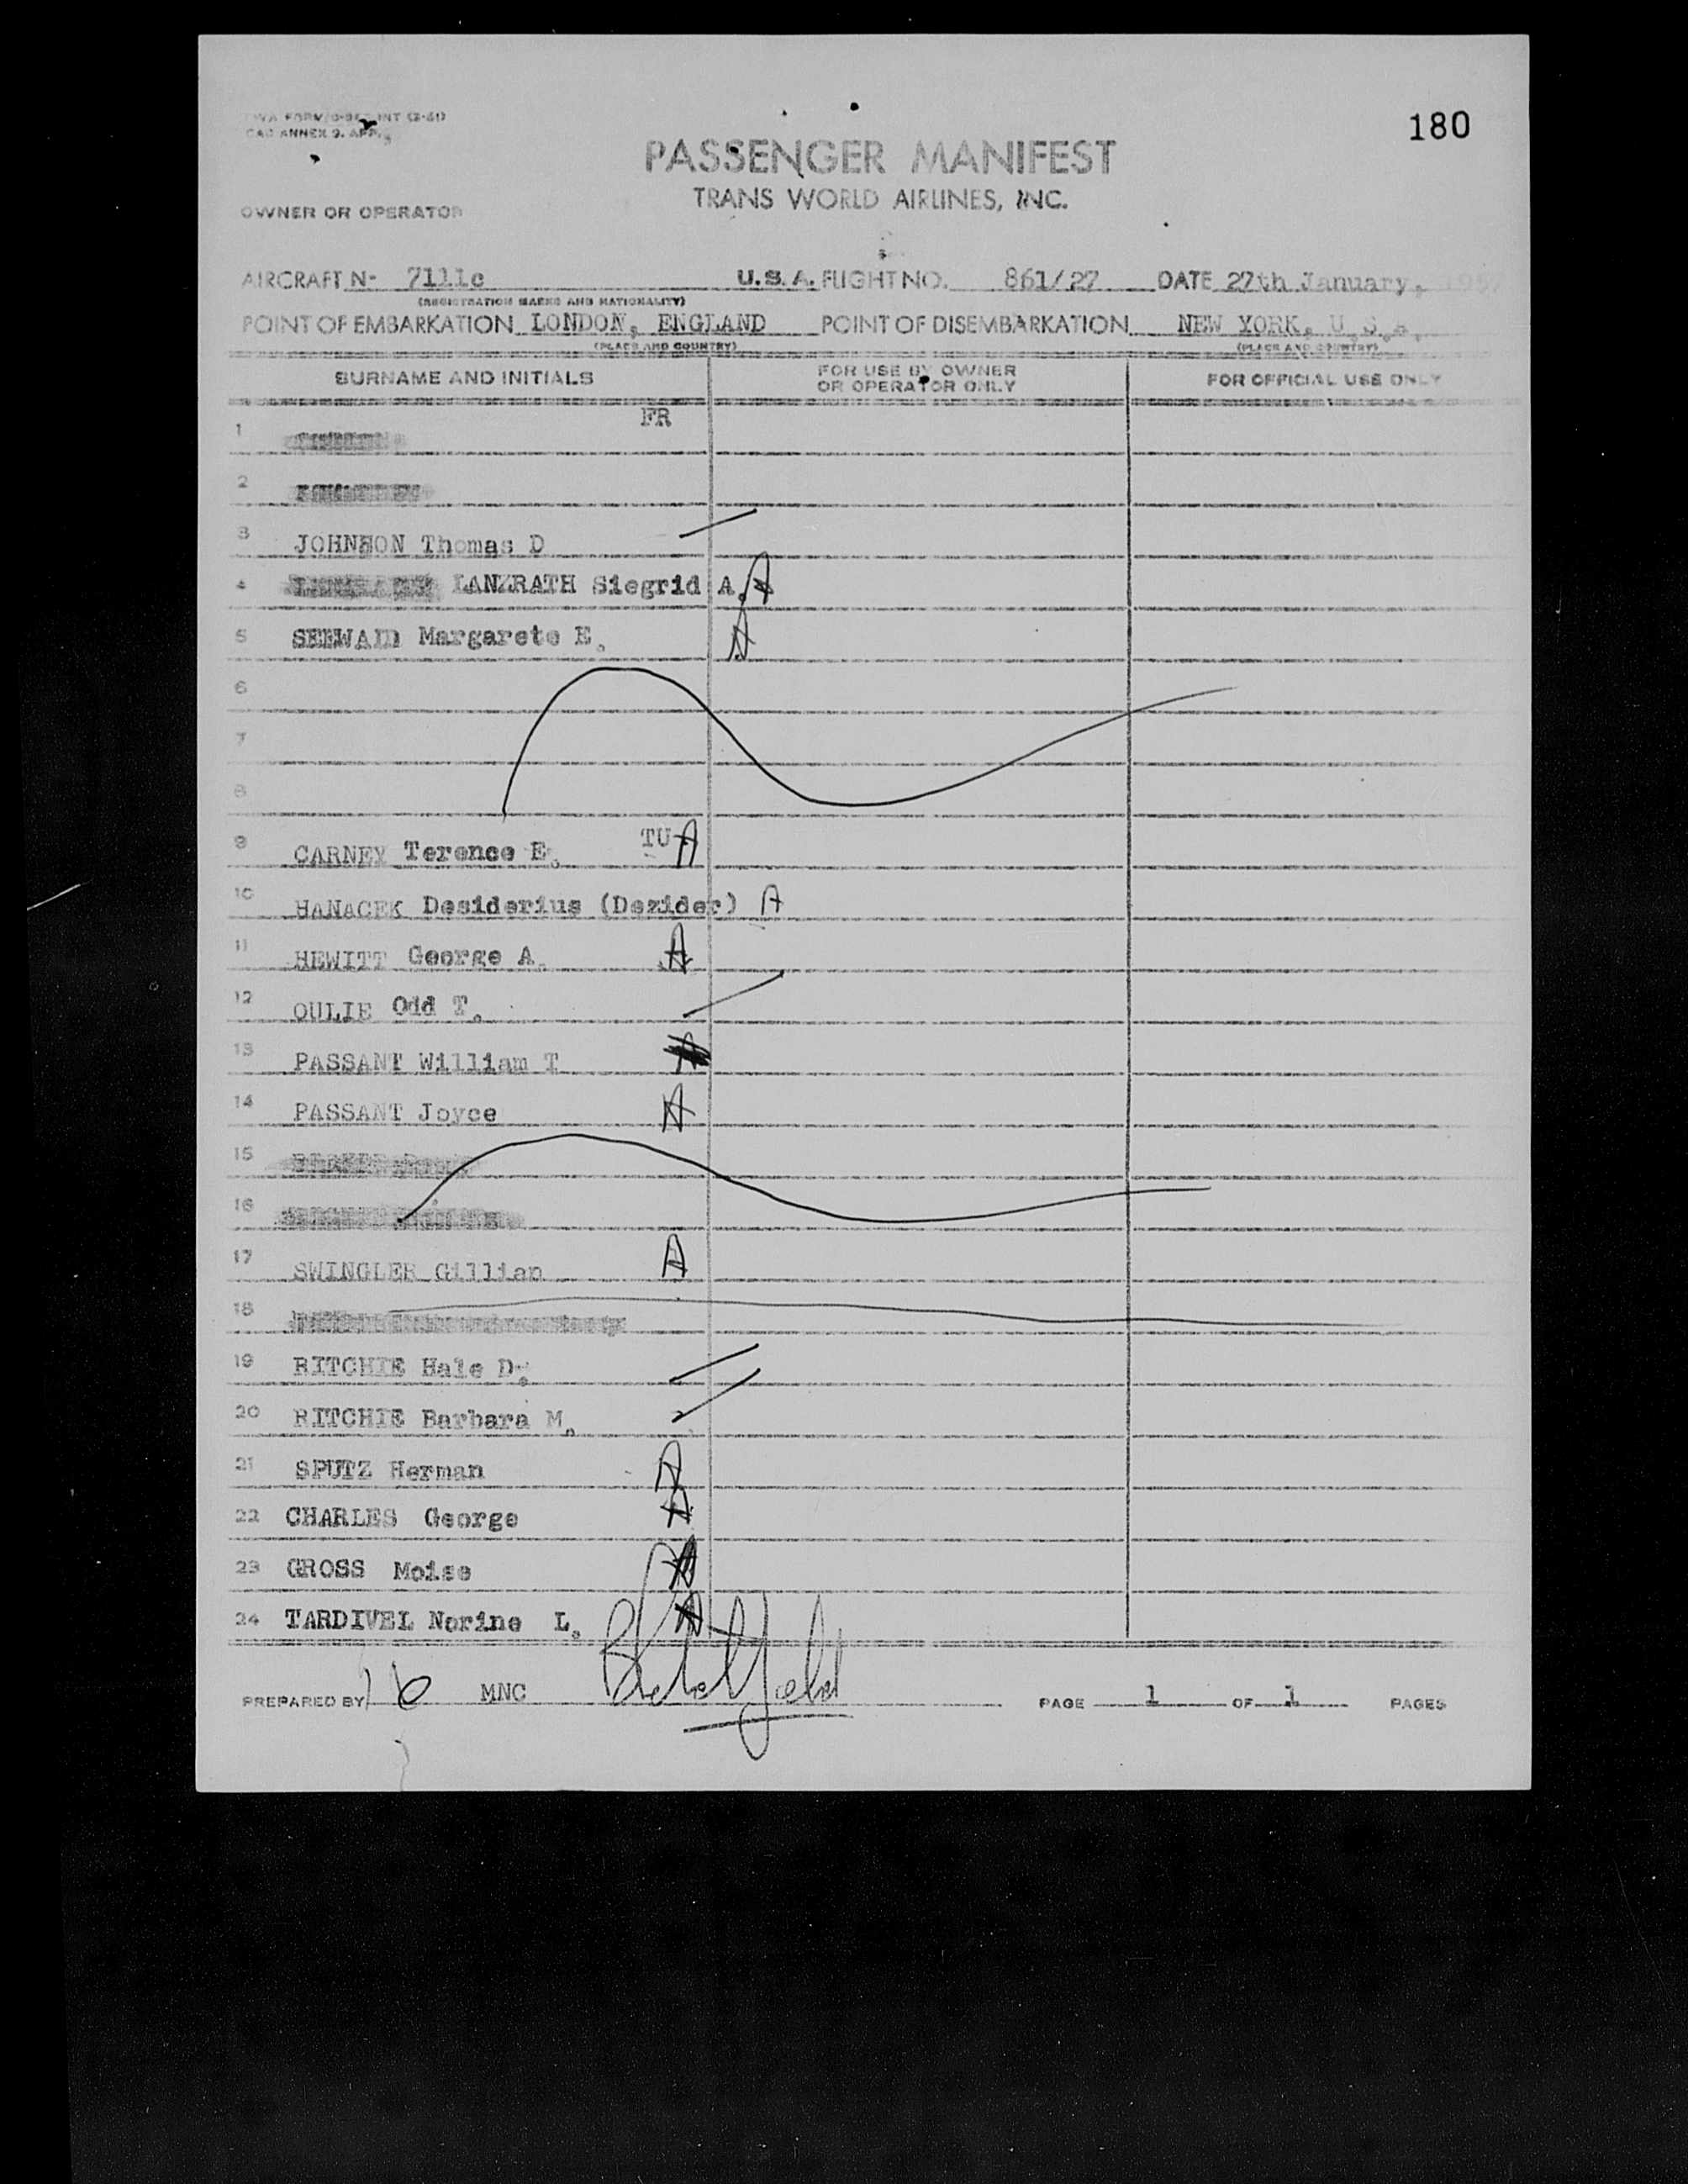 180
CAO ANNEX 9. APP.
PASSENGER MANIFEST
TRANS WORLD AIRLINES, INC.
OWNER OR OPERATOR
AIRCRAFT N- 7111c U.S.A. FLIGHT NO. 861/27 DATE 27th January,
(REGISTRATION MARKS AND NATIONALITY)
POINT OF EMBARKATION LONDON, ENGLAND POINT OF DISEMBARKATION NEW YORK, U.S.A.
(PLACE AND COUNTRY) (PLACE AND COUNTRY)
SURNAME AND INITIALS FOR USE BY OWNER OR OPERATOR ONLY FOR OFFICIAL USE ONLY
1 FR
2
3 JOHNSON Thomas D
4 LANZRATH Siegrid A. A
5 SEEWALD Margarete E. A
6
7
8
9 CARNEY Terence E. TU A
10 HANACEK Desiderius (Dezider) A
11 HEWITT George A. A
12 OULIE Odd T.
13 PASSANT William T A
14 PASSANT Joyce A
15
16
17 SWINGLER Gillian A
18
19 RITCHIE Hale D.
20 RITCHIE Barbara M.
21 SPUTZ Herman A
22 CHARLES George A
23 GROSS Moise A
24 TARDIVEL Norine L. A
PREPARED BY 16 MNC PAGE 1 OF 1 PAGES